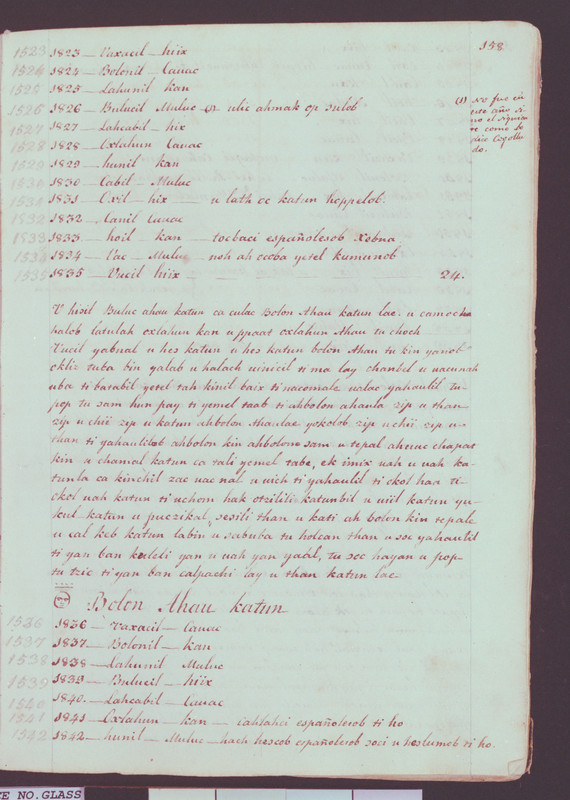 158
1523 1823 — Vaxacil — hiix
1524 1824 — Bolonil Cauac
1525 1825 — Lahunil kan
1526 1826 — Bulucil Muluc ulic ahmak op sulob
1527 1827 — Lahcabil — hix
1528 1828 — Oxlahun Cauac
1529 1829 — hunil kan
1530 1830 — Cabil — Muluc
1531 1831 — Oxil — hix — u lath oc katun hoppelob.
1532 1832 — Canil Cauac
1533 1833 — hoil — kan — tocbaci españolesob Xobna
1534 1834 — Vac — Muluc — noh ah ocoba yetel kumunob
1535 1835 — Vucil hiix 24.
(1) No fue en
este año si-
no el siguien
te como lo
dice Cogollu
do.
V hisil Buluc ahau katun ca culac Bolon Ahau katun lae. u camocha
halob latulah oxlahun kan u ppaat oxlahun Ahau tu choch
Vucil yabnal u hes katun u hes katun bolon Ahau tu kin yanob
tuba bin yalab u halach uinicil ti ma lay chanbel u nacunah
uba ti batabil yetel tah kinil baix ti nacomale ualac yahaulil tu-
pop tu sam hun pay ti yemel taab ti ahbolon ahaula zip u than
zip u chii zip u katun ahbolon Ahaulae yokolob zip u chii zip u-
than ti yahaulilob ahbolon kin ahbolon sam u tepal chapat
kin u chamal katun ca tali yemel tabe, ek imix uah u uah ka-
tunla ca kinchil zac uac nal u uich ti yahaulil ti okol haa ti-
okol uah katun ti uchom hak otzilili katunbil u uiil katun yu-
kul katun u puczikal, sesili than u kati ah bolon kin tepale
u cal keb katun labin u sabuba tu holcan than u soc yahaulil
ti yan ban kuleli yan u uah yan yaal, tu soc hayan u pop
tu tzic ti yan ban calpachi lay u than katun lae
Bolon Ahau katun
1536 1836 — Vaxacil — Cauac
1537 1837 — Bolonil — kan
1538 1838 — Lahunil Muluc
1539 1839 — Bulucil — hiix
1540 1840 — Lahcabil — Cauac
1541 1841 — Oxlahun kan — cahlahci españolesob ti ho
1542 1842 — hunil — Muluc — hach hoscob españolesob soci u hoslumob ti ho.
E NO. GLASS